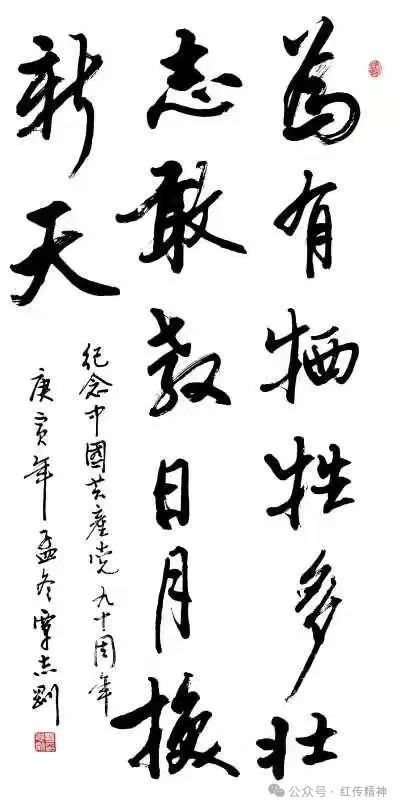 為有牺牲多壮
志敢教日月換
新天
纪念中國共產党九十周年
庚寅年孟冬覃志剛
公众号 · 红传精神